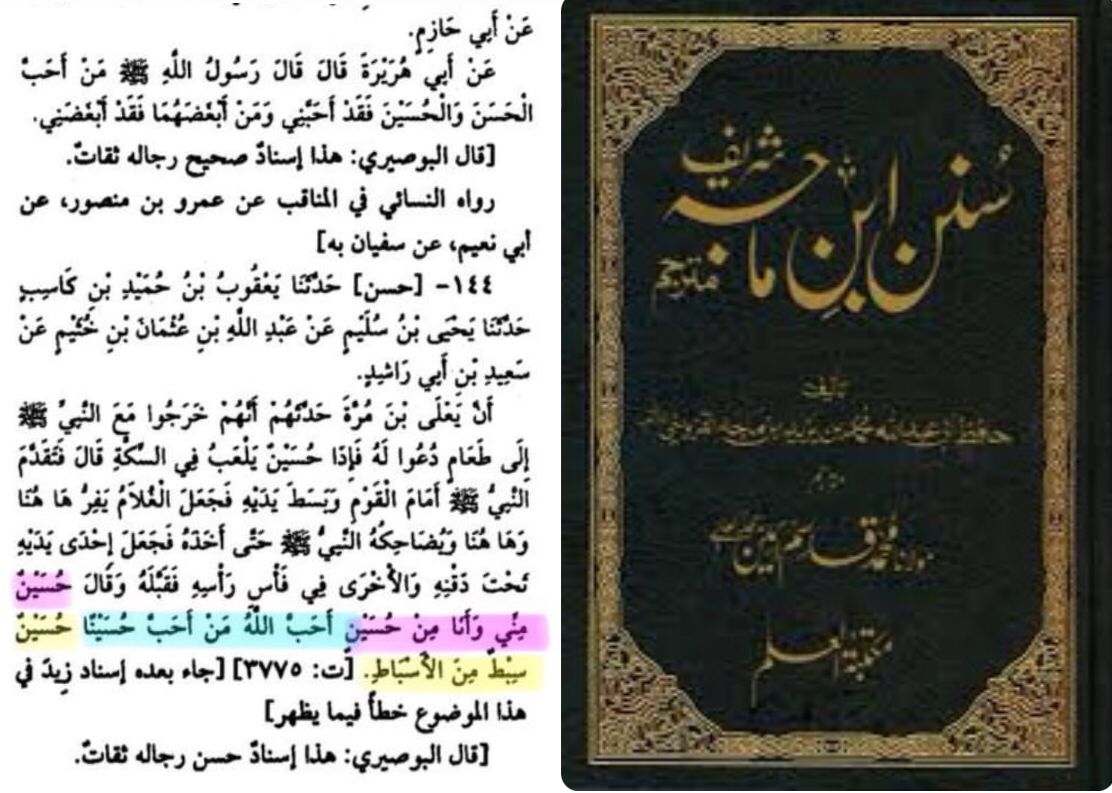 عَنْ أَبِي حَازِمٍ.
عَنْ أَبِي هُرَيْرَةَ قَالَ قَالَ رَسُولُ اللَّهِ ﷺ مَنْ أَحَبَّ
الْحَسَنَ وَالْحُسَيْنَ فَقَدْ أَحَبَّنِي وَمَنْ أَبْغَضَهُمَا فَقَدْ أَبْغَضَنِي.
[قال البوصيري: هذا إسنادٌ صحيح رجاله ثقاتٌ.
رواه النسائي في المناقب عن عمرو بن منصور، عن
أبي نعيم، عن سفيان به]
١٤٤- [حسن] حَدَّثَنَا يَعْقُوبُ بْنُ حُمَيْدِ بْنِ كَاسِبٍ
حَدَّثَنَا يَحْيَى بْنُ سُلَيْمٍ عَنْ عَبْدِ اللَّهِ بْنِ عُثْمَانَ بْنِ خُثَيْمٍ عَنْ
سَعِيدِ بْنِ أَبِي رَاشِدٍ.
أَنَّ يَعْلَى بْنَ مُرَّةَ حَدَّثَهُمْ أَنَّهُمْ خَرَجُوا مَعَ النَّبِيِّ ﷺ
إِلَى طَعَامٍ دُعُوا لَهُ فَإِذَا حُسَيْنٌ يَلْعَبُ فِي السِّكَّةِ قَالَ فَتَقَدَّمَ
النَّبِيُّ ﷺ أَمَامَ الْقَوْمِ وَبَسَطَ يَدَيْهِ فَجَعَلَ الْغُلَامُ يَفِرُّ هَا هُنَا
وَهَا هُنَا وَيُضَاحِكُهُ النَّبِيُّ ﷺ حَتَّى أَخَذَهُ فَجَعَلَ إِحْدَى يَدَيْهِ
تَحْتَ ذَقْنِهِ وَالْأُخْرَى فِي فَأْسِ رَأْسِهِ فَقَبَّلَهُ وَقَالَ حُسَيْنٌ
مِنِّي وَأَنَا مِنْ حُسَيْنٍ أَحَبَّ اللَّهُ مَنْ أَحَبَّ حُسَيْنًا حُسَيْنٌ
سِبْطٌ مِنَ الْأَسْبَاطِ. [ت: ٣٧٧٥] [جاء بعده إسناد زِيدَ في
هذا الموضوع خطأً فيما يظهر]
[قال البوصيري: هذا إسنادٌ حسن رجاله ثقاتٌ.
سُنن ابنِ ماجہ شریف
مترجم
تالیف
مترجم
مولانا محمد قاسم امین
مکتبۃ العلم